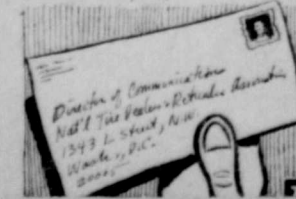 Director of Communications
Nat'l Tire Dealers & Retreaders Association
1343 L Street, N.W.
Wash., D.C.
20005